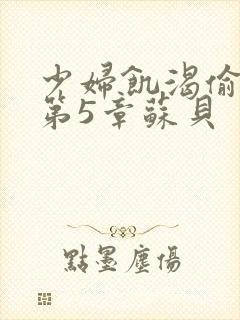 少婦飢渴偷
第5章蘇貝
點墨塵傷